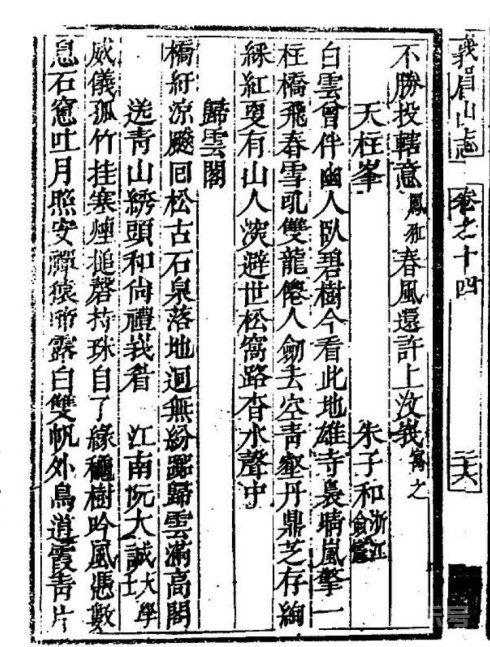 峩眉山志 卷之十四 二六
不勝投轄意鳳雅春風還許上汶峩寓之
天柱峯 朱子和浙江僉憲
白雲曾伴幽人臥碧樹今看此地雄寺裊晴嵐擎一
柱橋飛春雪吼雙龍僊人劒去空青壑丹鼎芝存絢
綵紅更有山人演避世松窩路杳水聲中
歸雲閣
橋紆涼飈回松古石泉落地迴無紛躑歸雲滿高閣
送青山綉頭和尙禮峩眉 江南阮大誠大學士
威儀孤竹挂寒煙搥磬持珠自了緣穐樹吟風凴數
息石窓吐月照安禪猿啼露白雙帆外鳥道霞青片